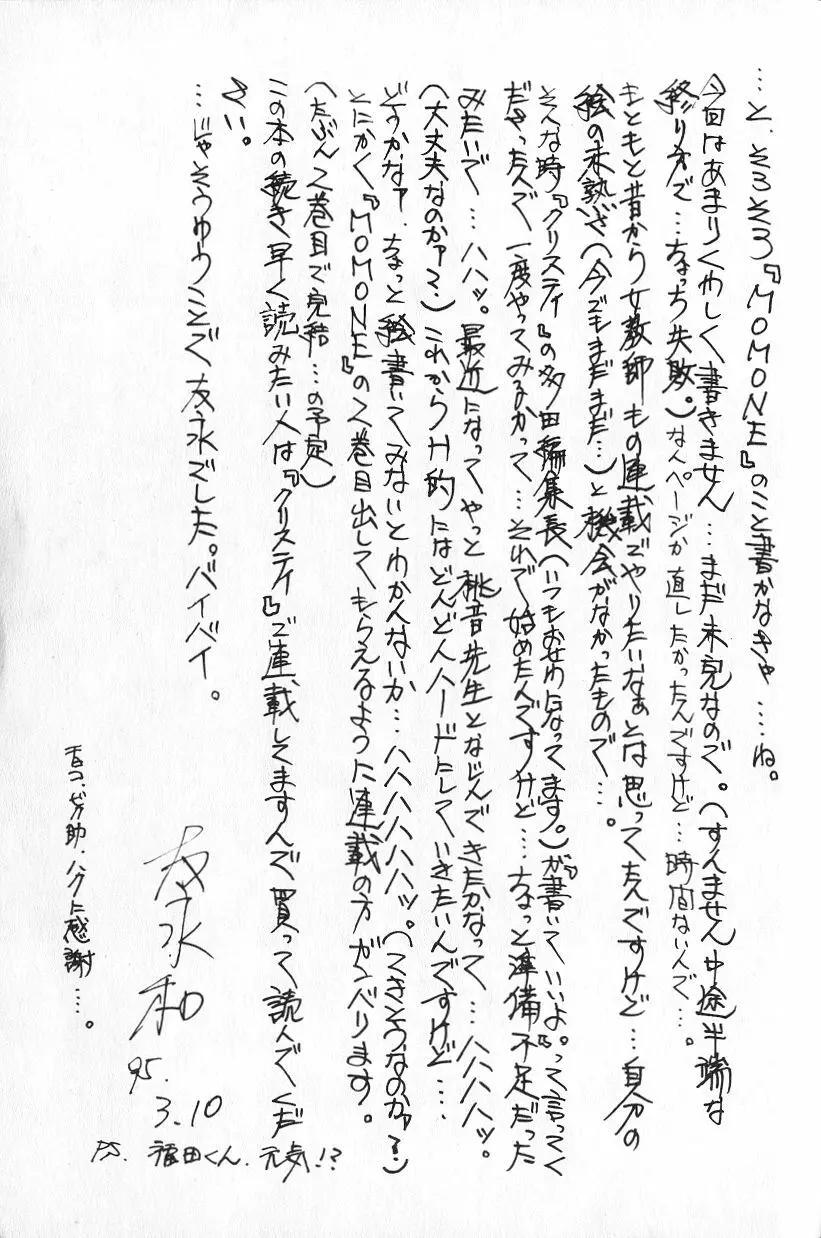 …と、そろそろ『MOMONE』のこと書かなきゃ…ね。
今回はあまりくわしく書きません…まだ未完なので。(すんません中途半端な
終り方で…ちょっち失敗。)なんページか直したかったんですけど…時間ないんで…。
もともと昔から女教師もの連載でやりたいなぁとは思ってたんですけど…自分の
絵の未熟さ(今でもまだまだ…)と機会がなかったもので…。
そんな時『クリスティ』の多田編集長(いつもお世わになってます。)が『書いていいよ。』って言ってく
ださったんで一度やってみるかって…それで始めたんですけど…ちょっと準備不足だった
みたいで…ハハッ。最近になってやっと桃音先生となじんできたかなって…ハハハハッ。
(大丈夫なのかァ?)これからH的にはどんどんハードにしていきたいんですけど…
どうかなァ、ちょっと絵書いてみないとわかんないか…ハハハハハハッ。(てきとうなのかァ?)
とにかく『MOMONE』の2巻目出してもらえるように連載の方ガンバります。
(たぶん2巻目で完結…の予定)
この本の続き早く読みたい人は『クリスティ』で連載してますんで買って読んでくだ
さい。
…じゃそうゆうことで友永でした。バイバイ。
助、ハクに感謝…。
友永和
'95.
3.10
P.S. 福田くん、元気!?